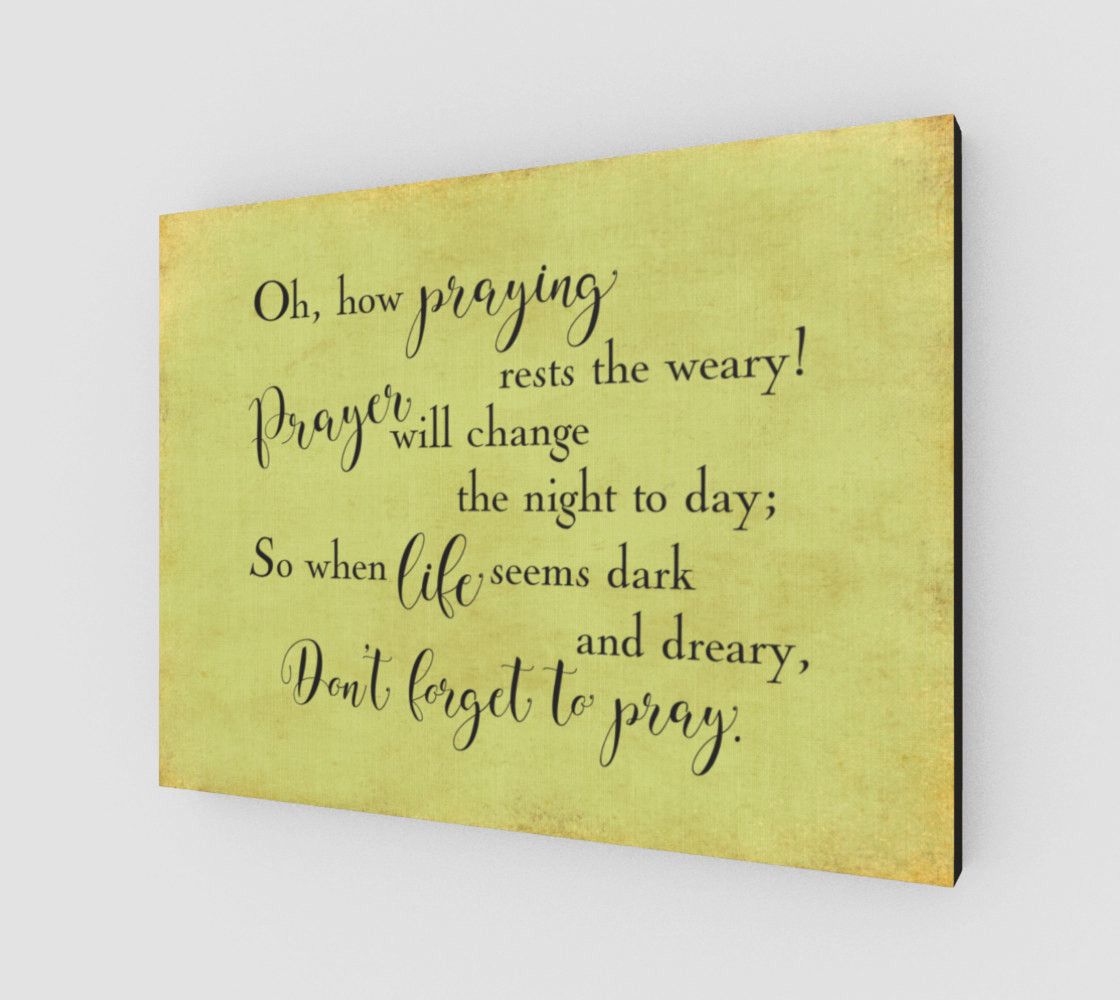 Oh, how praying
rests the weary!
Prayer will change
the night to day;
So when life seems dark
and dreary,
Don't forget to pray.